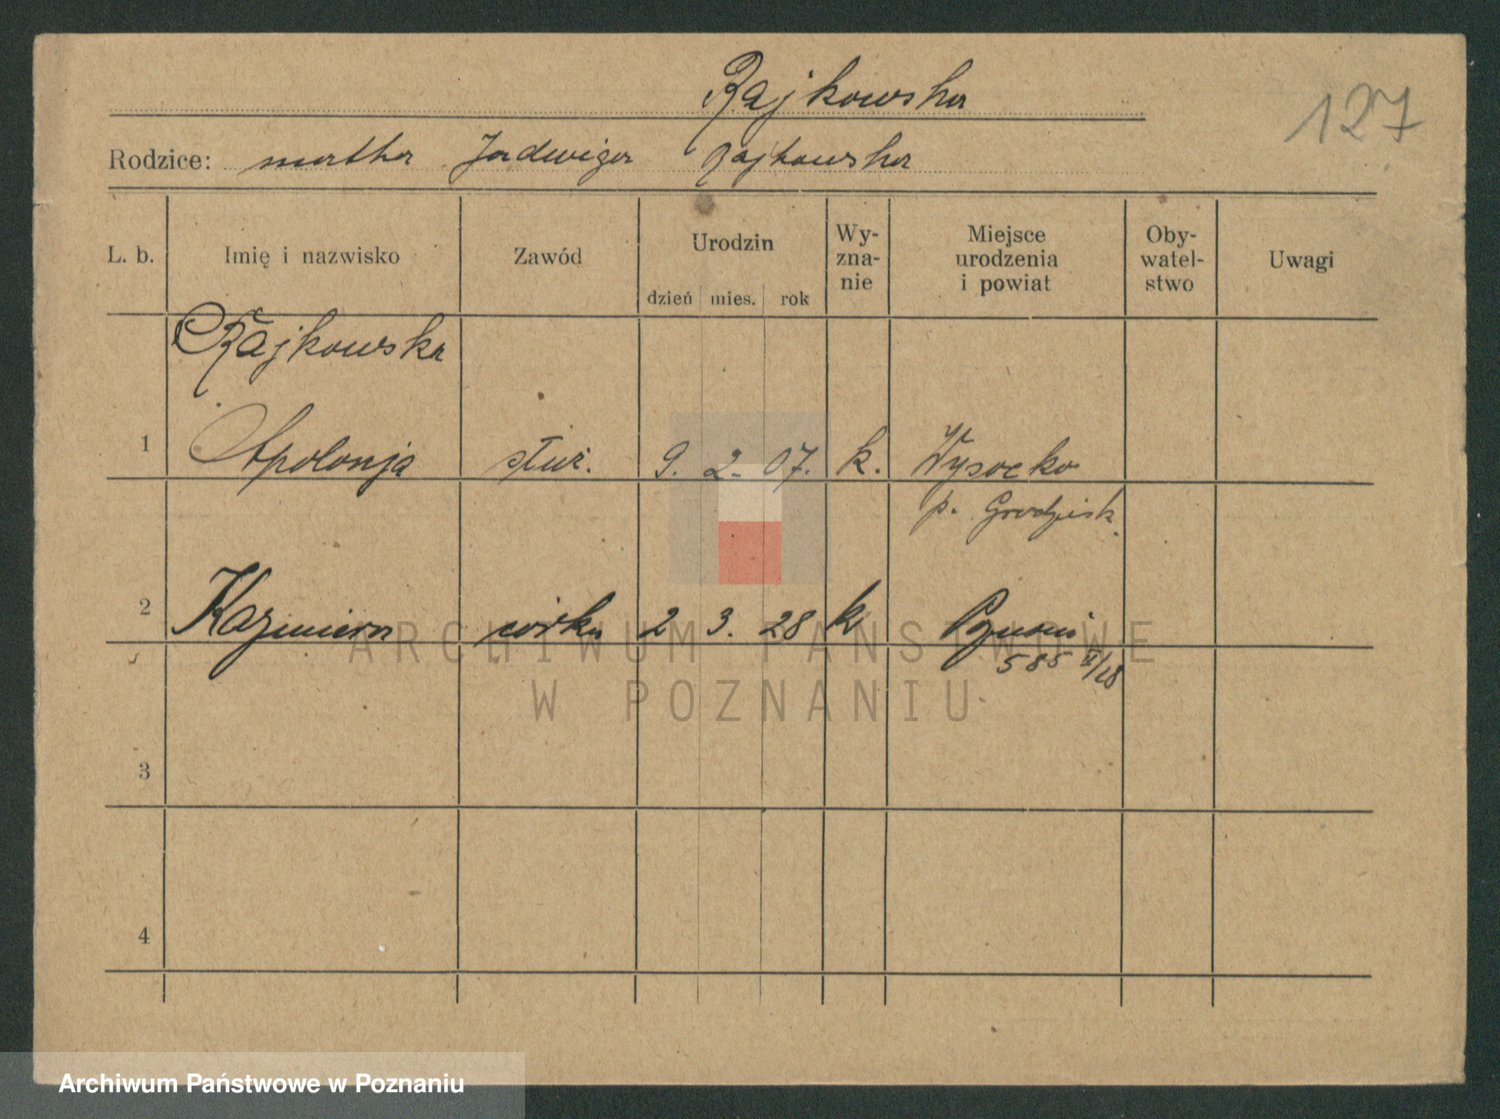 Rajkowska
127
Rodzice: matka Jadwiga Rajkowska
L. b. Imię i nazwisko Zawód Urodzin dzień mies. rok Wy-zna-nie Miejsce urodzenia i powiat Oby-watel-stwo Uwagi
Rajkowska
1 Apolonja służ. 9. 2. 07. k. Wysocko
p. Grodzisk
2 Kazimiera córka 2 3. 28 k Poznań
585 II/28
3
4
ARCHIWUM PAŃSTWOWE
W POZNANIU
Archiwum Państwowe w Poznaniu